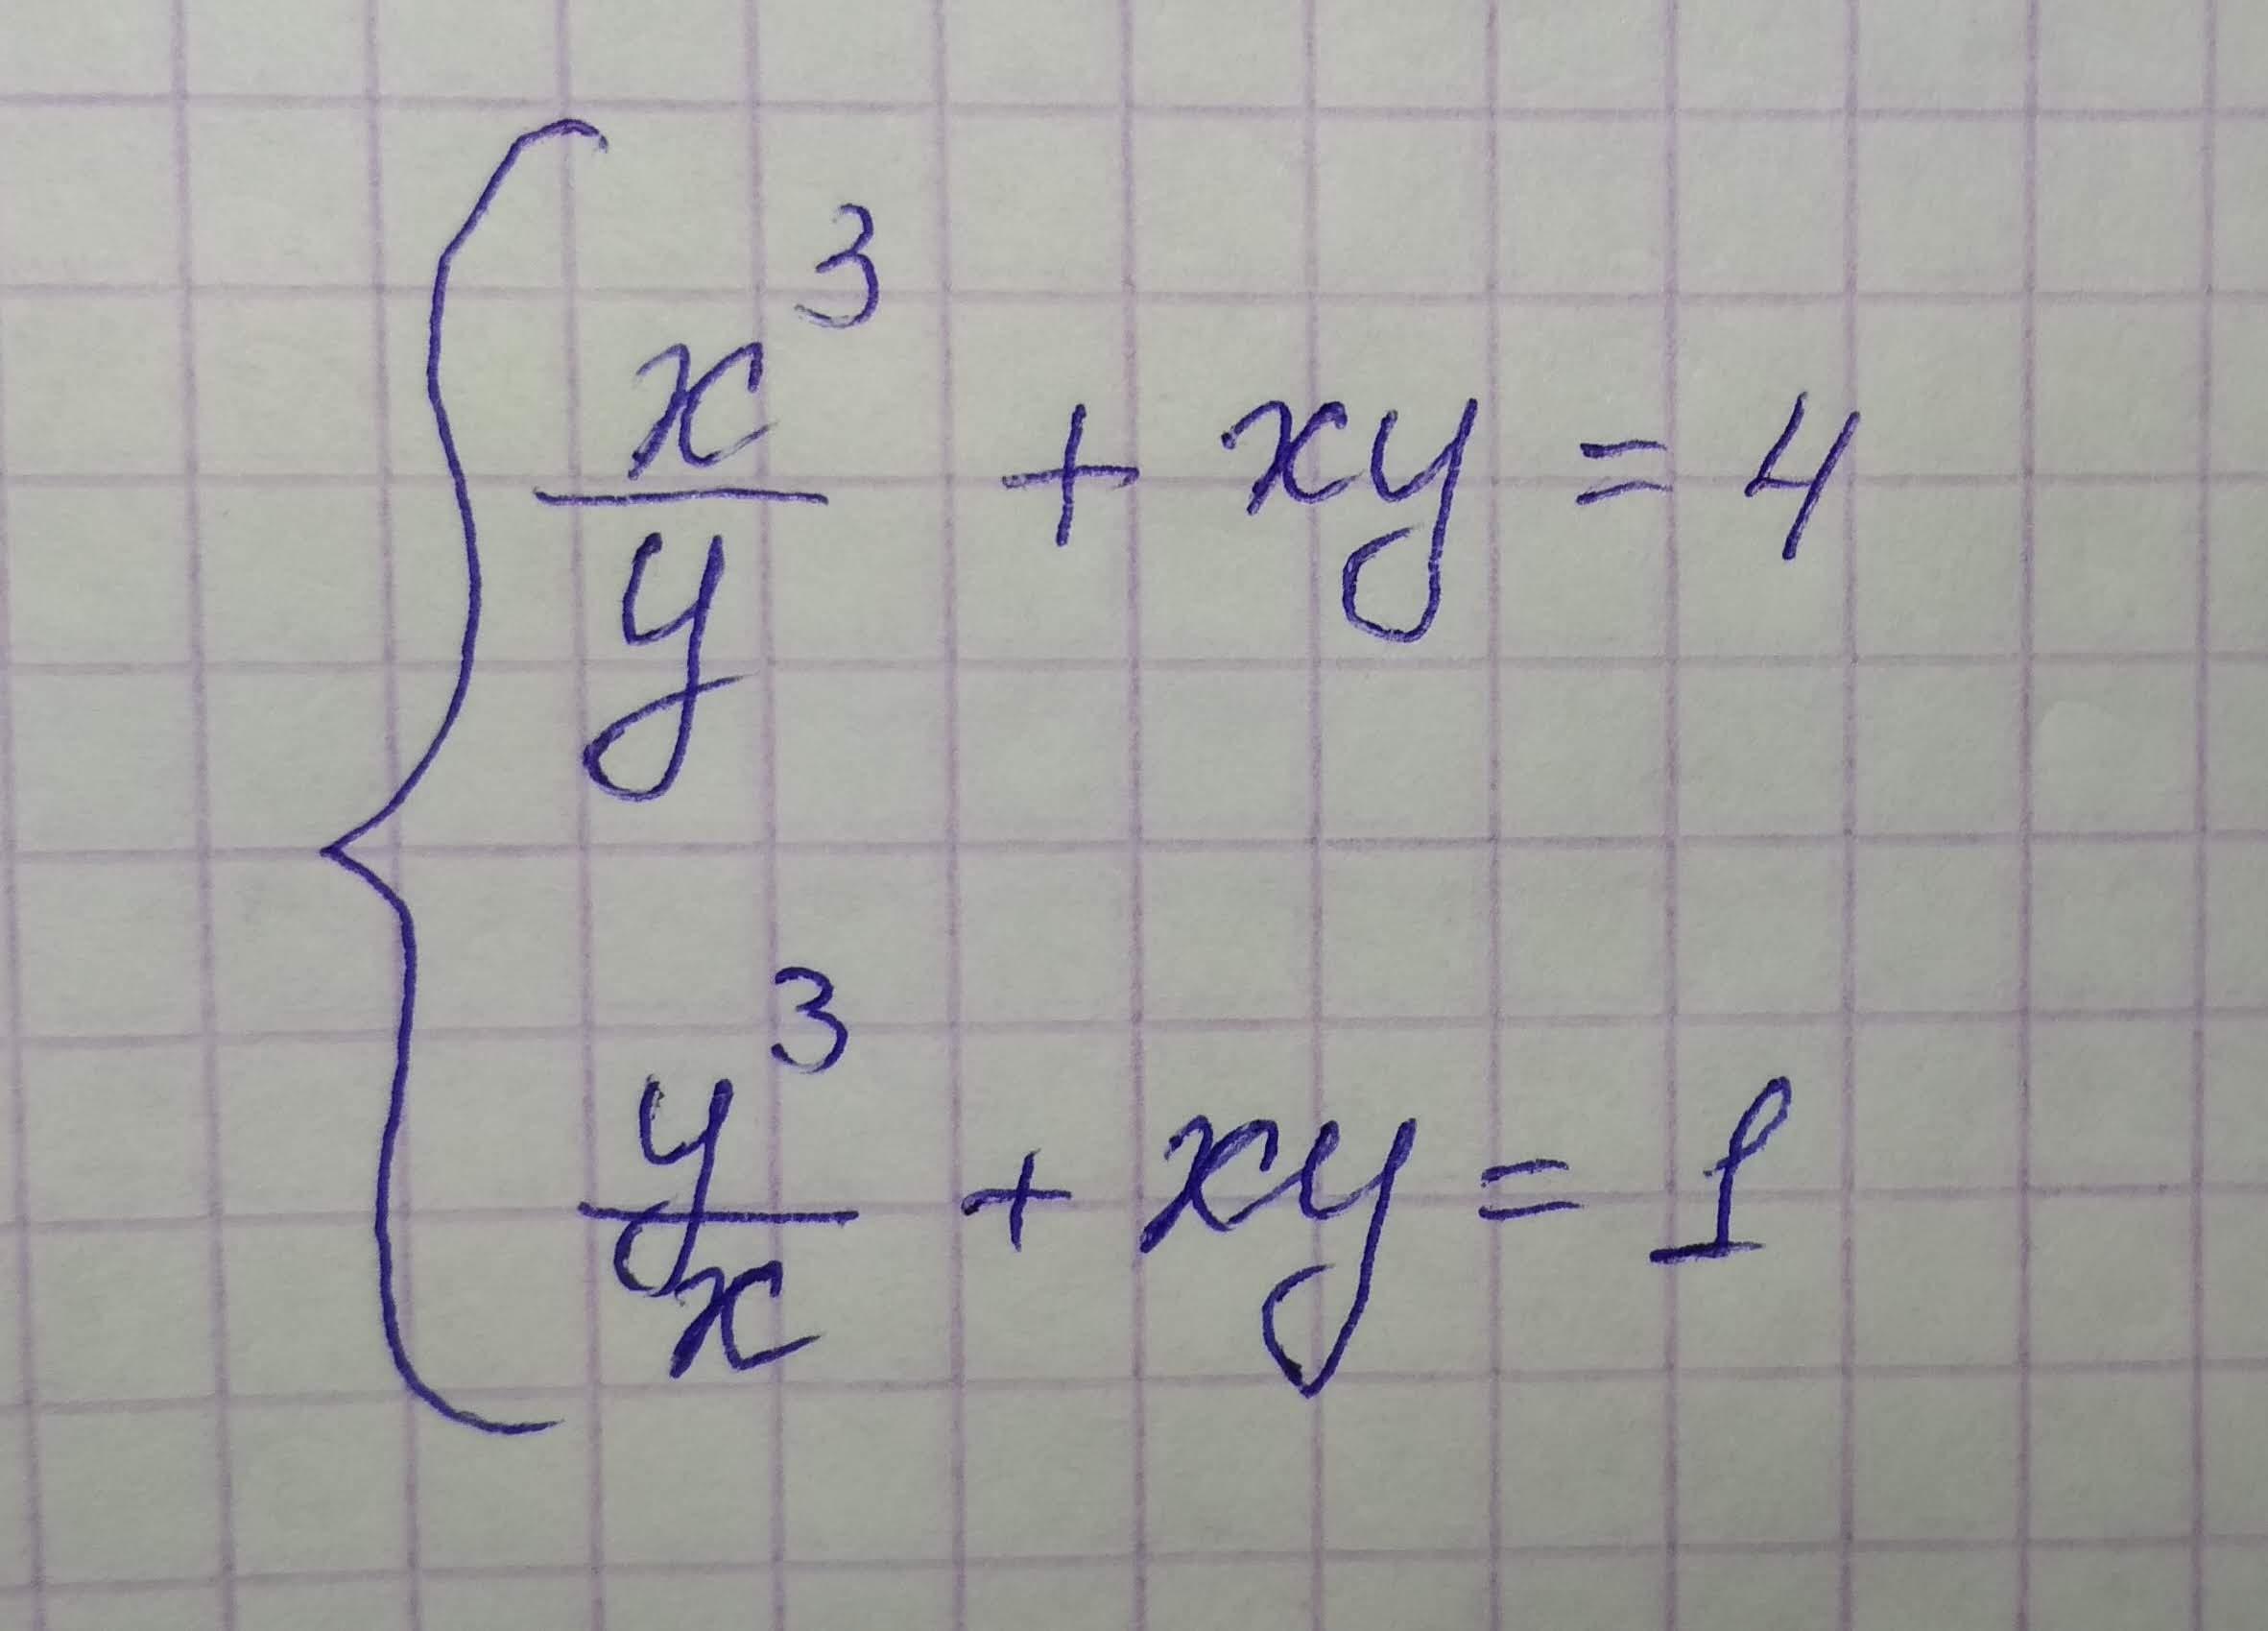 x³/y + xy = 4
y³/x + xy = 1